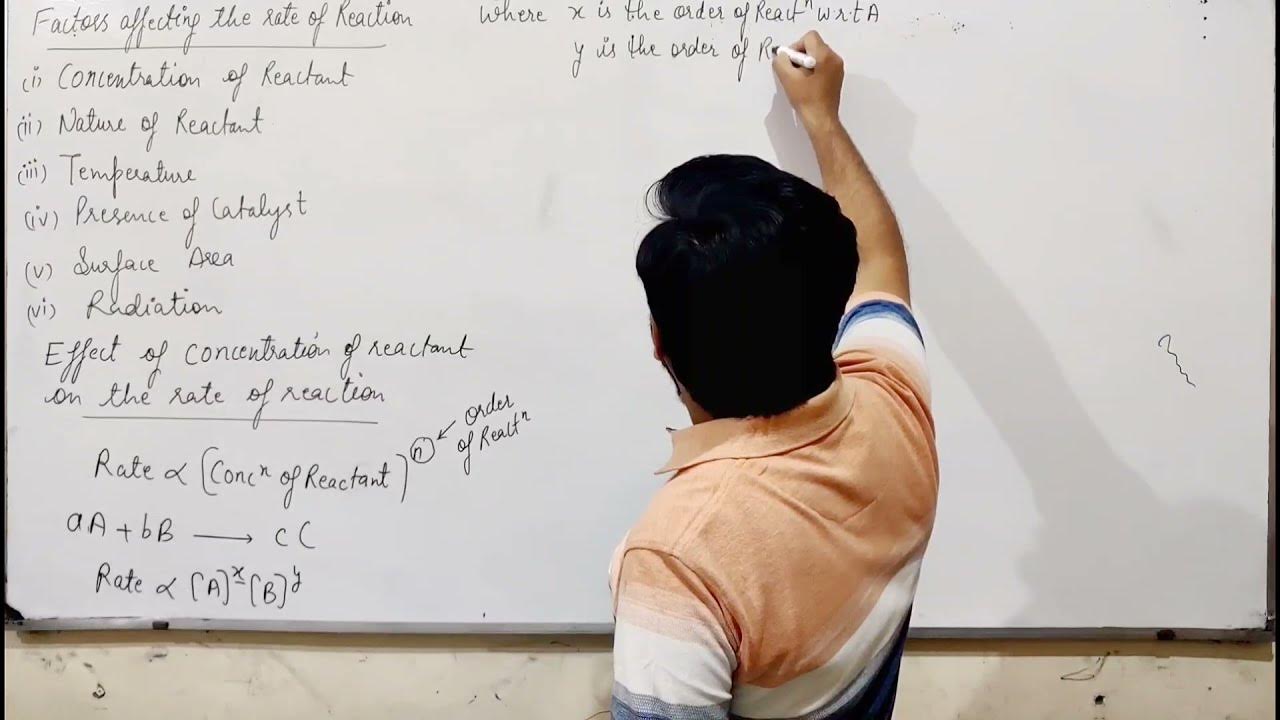 Factors affecting the rate of Reaction
(i) Concentration of Reactant
(ii) Nature of Reactant
(iii) Temperature
(iv) Presence of Catalyst
(v) Surface Area
(vi) Radiation
Effect of concentration of reactant
on the rate of reaction
Rate ∝ [Concⁿ of Reactant]ⁿ ← order
of Reactⁿ
aA + bB ⟶ cC
Rate ∝ [A]ˣ [B]ʸ
Where x is the order of Reactⁿ w.r.t A
y is the order of R